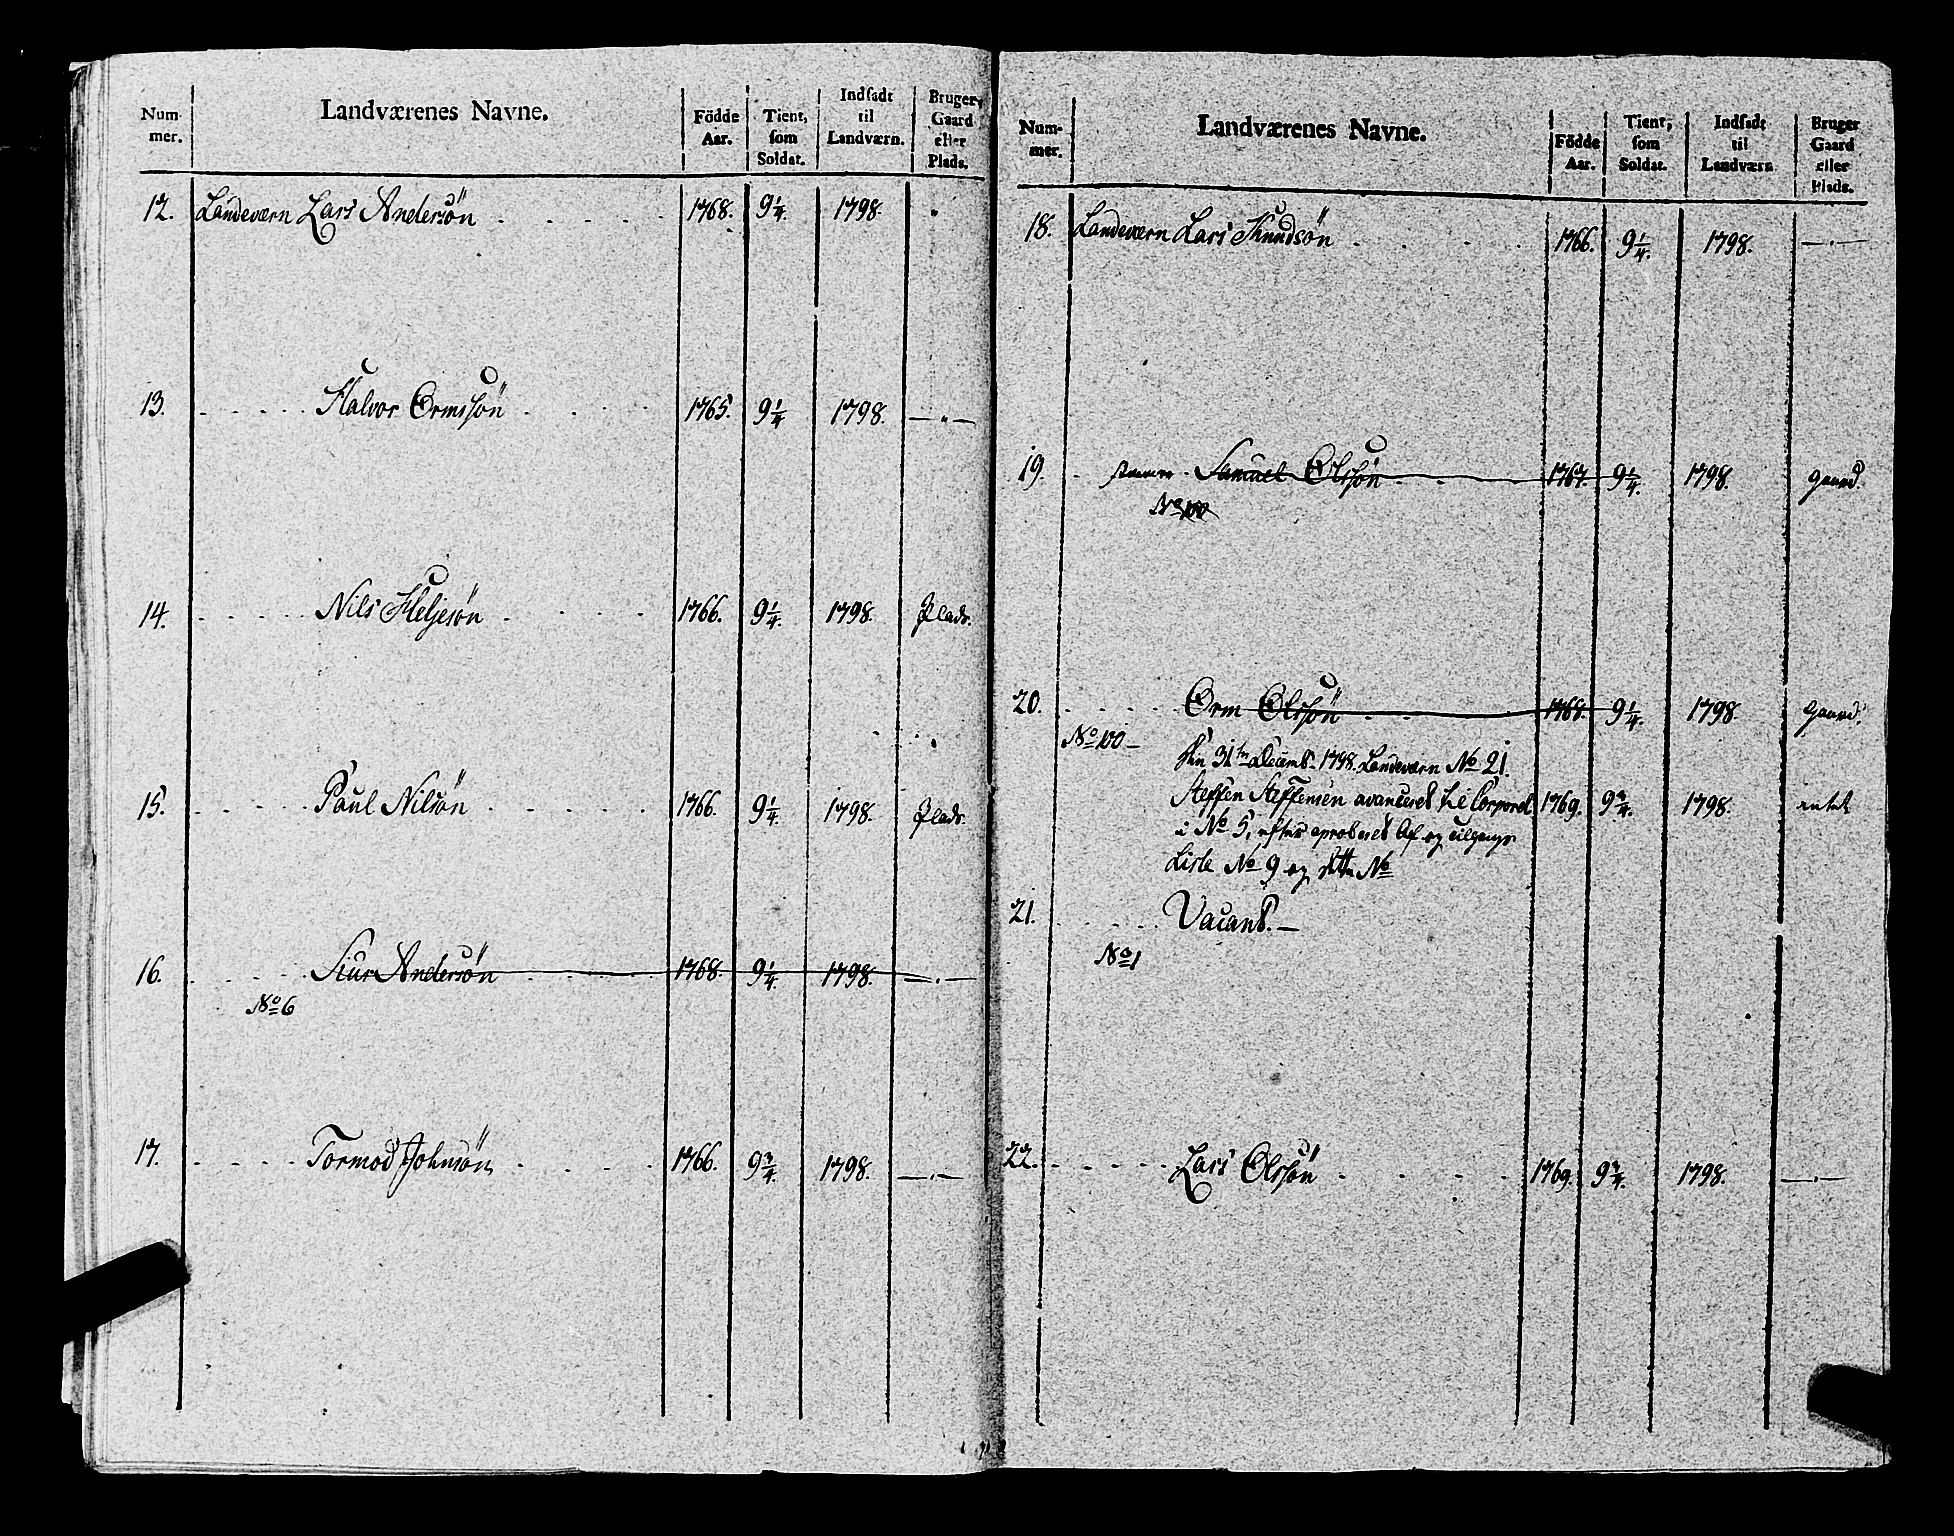 Num-
mer.
Landværenes Navne.
Födde
Aar.
Tient,
som
Soldat.
Indsadt
til
Landværn.
Bruger
Gaard
eller
Plads.
12. Landeværn Lars Andersön 1768. 9 1/4. 1798. "
13. Halvor Ormssön 1765. 9 1/4 1798. — " —
14. Nils Heljesön 1766. 9 1/4. 1798. Plads.
15. Paul Nilsön 1766. 9 1/4. 1798. Plads.
16. Siur Andersön 1768. 9 1/4. 1798. — . —
No 6
17. Tormod Johnsön 1766. 9 3/4. 1798. — . —
Num-
mer.
Landværenes Navne.
Födde
Aar.
Tient,
som
Soldat.
Indsadt
til
Landværn
Bruger
Gaard
eller
Plads.
18. Landeværn Lars Knudsön 1766. 9 1/4. 1798. — . —
19. Samuel Olssön 1767. 9 1/4. 1798. Gaard.
No 100
20. Orm Olssön 1768. 9 1/4. 1798. Gaard.
No 100 —
Den 31te Decemb. 1798. Landeværn No 21.
Steffen Steffensen avanceret til Corporal 1769. 9 3/4. 1798. intet
i No 5, efter aproberet Af og tilgangs
Liste No 9 og dito No
21. Vacant. —
No 1
22. Lars Olssön 1769. 9 3/4. 1798. — . —